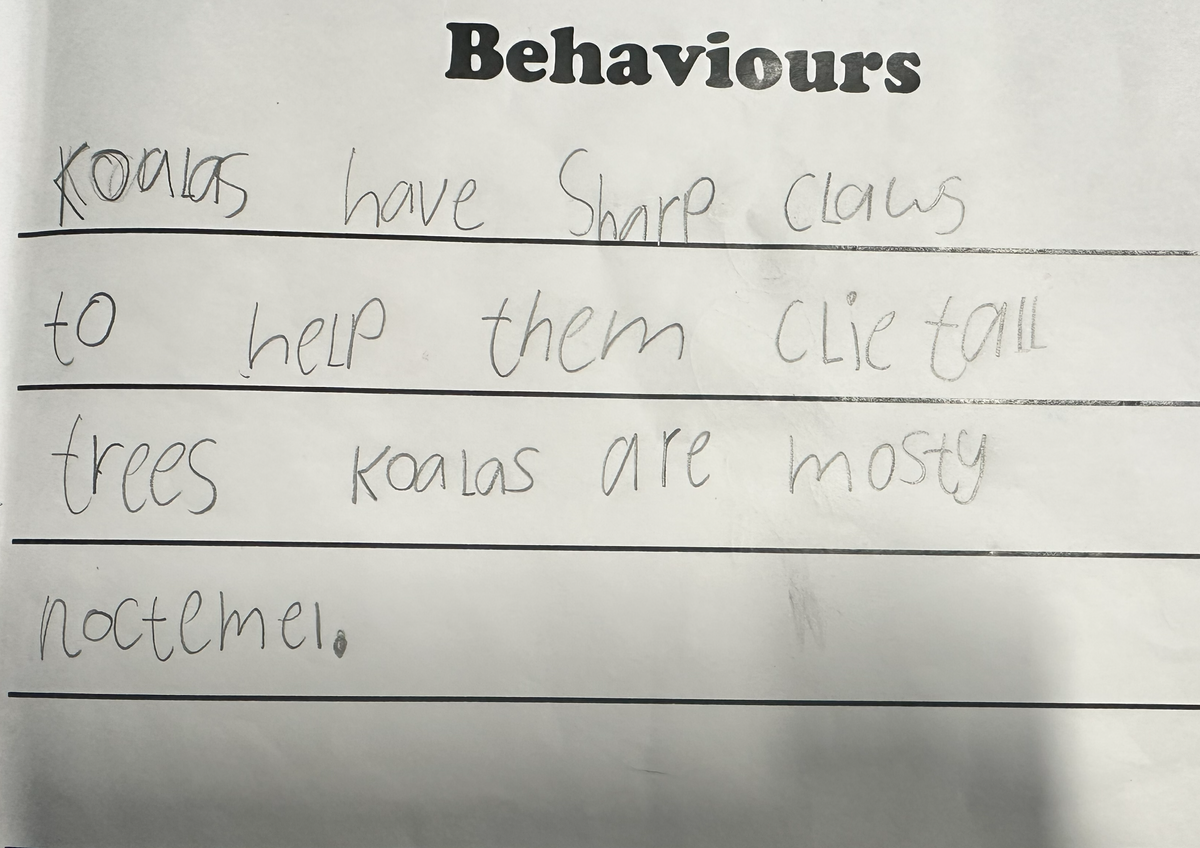 Behaviours
Koalas have Sharp claws
to help them clie tall
trees koalas are mosty
noctemel.